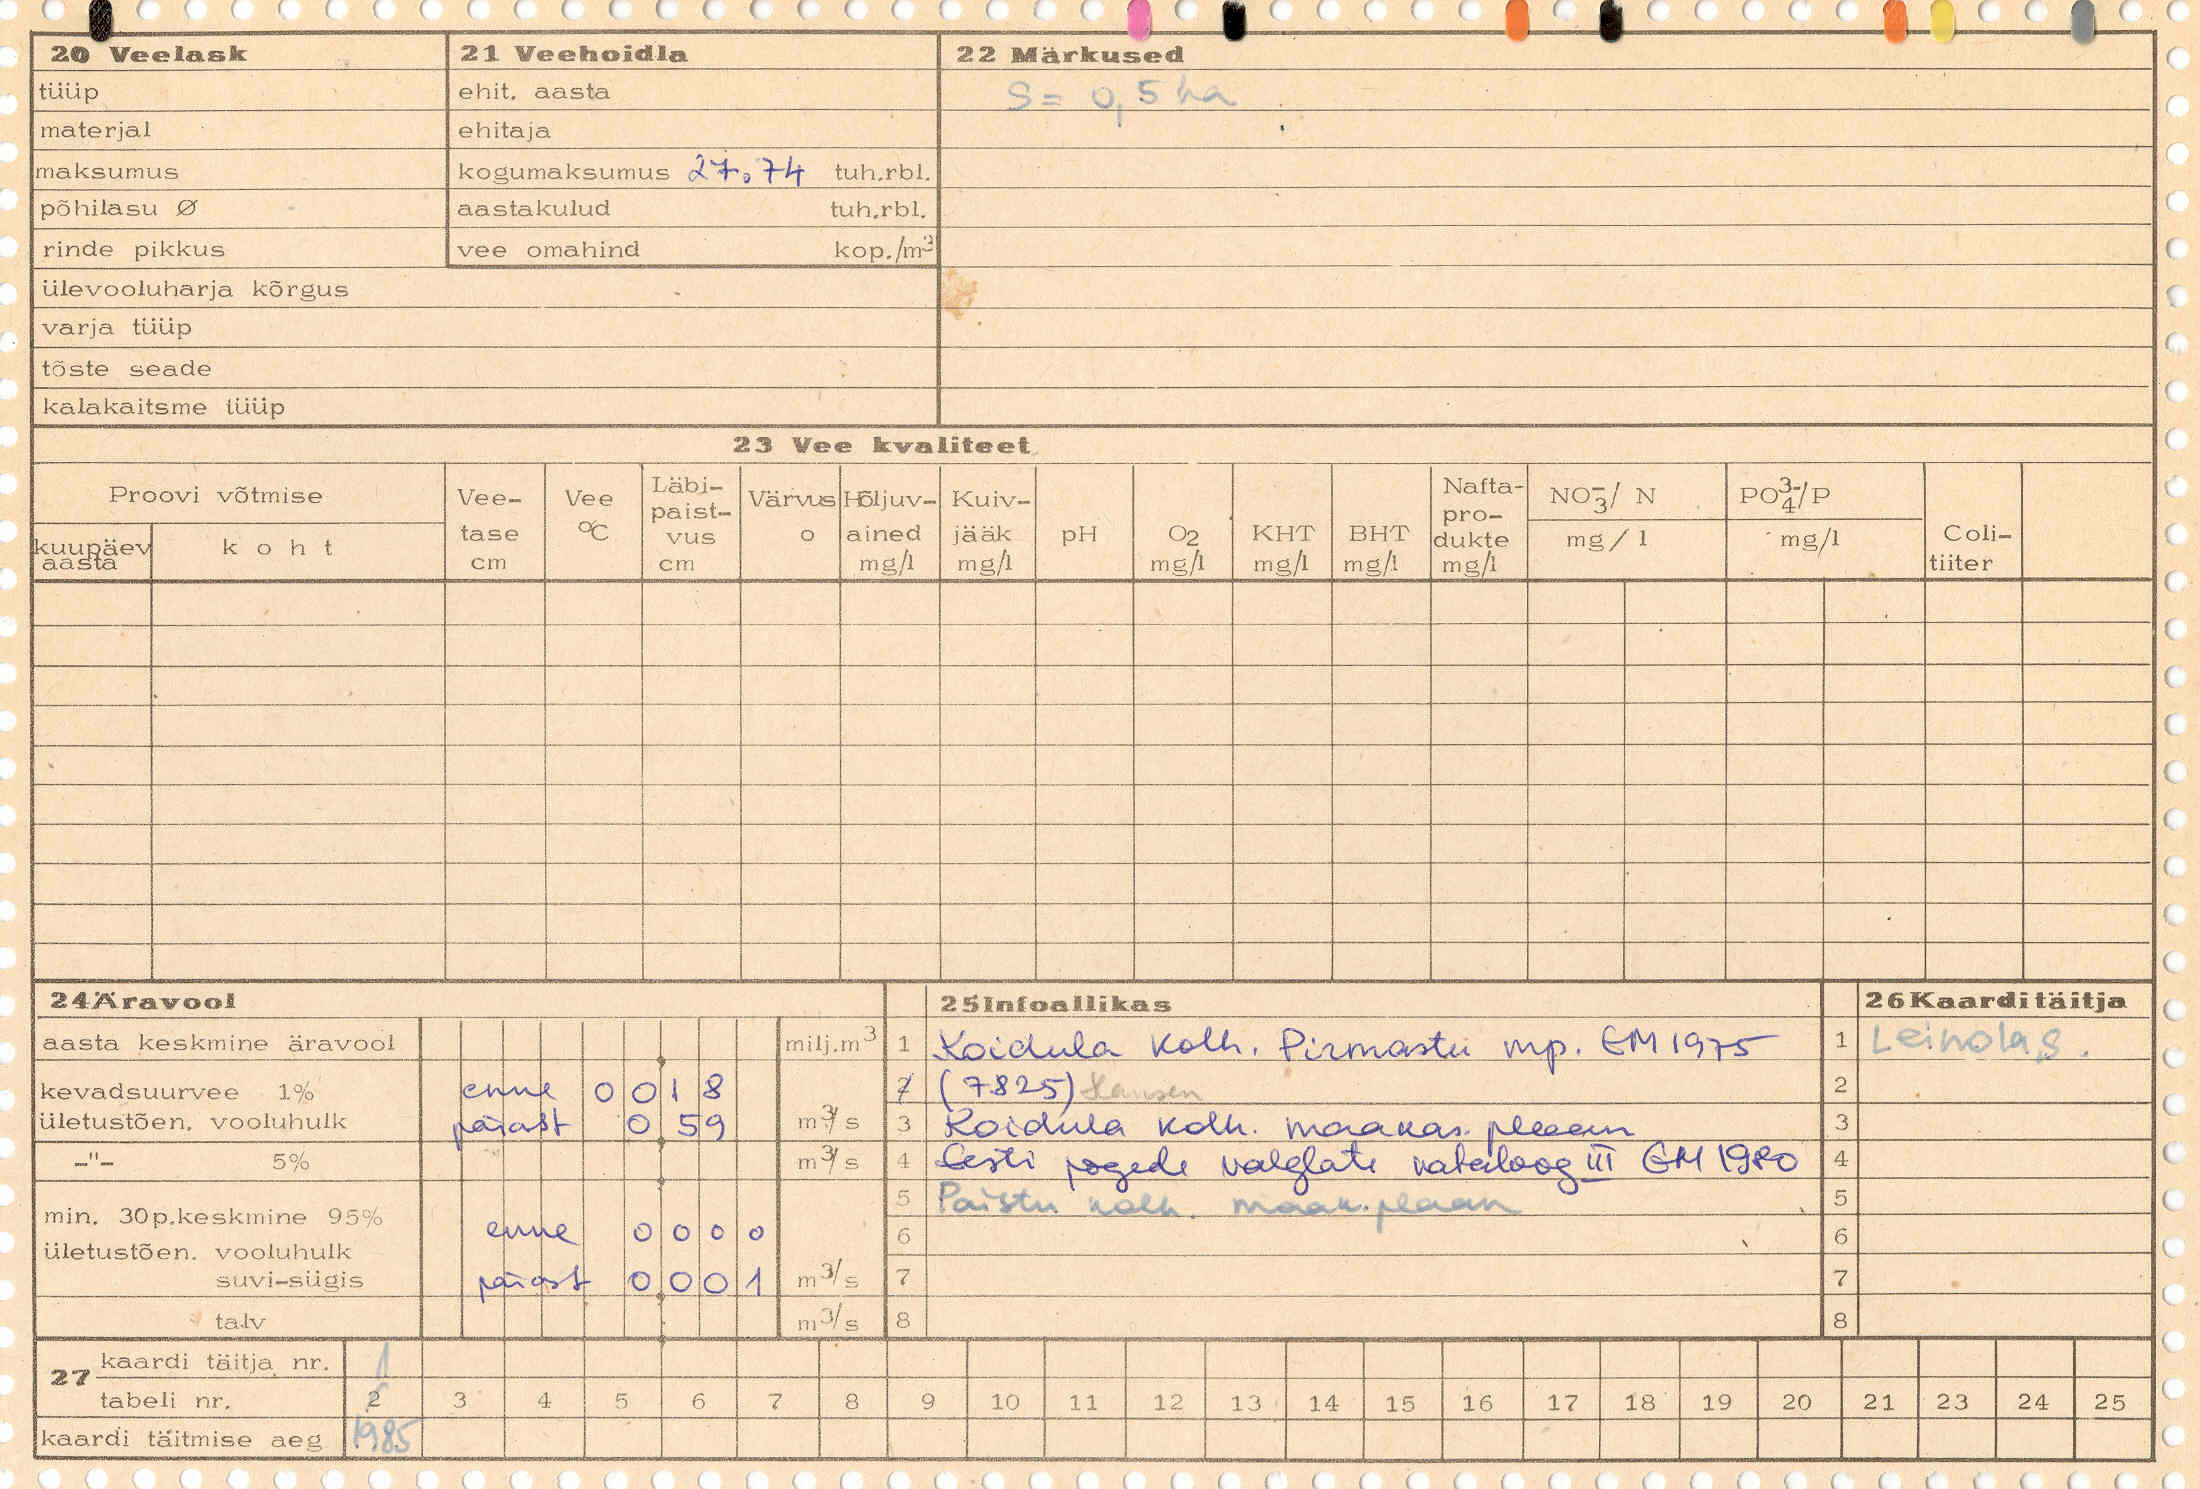 20 Veelask
tüüp
materjal
maksumus
põhilasu Ø
rinde pikkus
ülevooluharja kõrgus
varja tüüp
tõste seade
kalakaitsme tüüp
21 Veehoidla
ehit. aasta
ehitaja
kogumaksumus 27.74 tuh.rbl.
aastakulud tuh.rbl.
vee omahind kop./m³
22 Märkused
S = 0,5 ha
23 Vee kvaliteet
Proovi võtmise
kuupäev aasta
koht
Vee-tase cm
Vee °C
Läbi-paist-vus cm
Värvus o
Hõljuv-ained mg/l
Kuiv-jääk mg/l
pH
O2 mg/l
KHT mg/l
BHT mg/l
Nafta-pro-dukte mg/l
NO3⁻/ N mg/l
PO4³⁻/P mg/l
Coli-tiiter
24 Äravool
aasta keskmine äravool milj.m³
kevadsuurvee 1% enne 0 0 1 8
ületustõen. vooluhulk pärast 0 5 9 m³/s
-"- 5% m³/s
min. 30p.keskmine 95%
enne 0 0 0 0
ületustõen. vooluhulk
suvi-sügis pärast 0 0 0 1 m³/s
talv m³/s
25 Infoallikas
1 Koidula kolh. Pirmastu mp. EM 1975
2 (7825) Hansen
3 Koidula kolh. maakas. plaan
4 Eesti jõgede valglate kataloog III EM 1980
5 Paistu kolh. maak. plaan
6
7
8
26 Kaardi täitja
1 Leinola, S.
2
3
4
5
6
7
8
27 kaardi täitja nr. 1
tabeli nr. 2 3 4 5 6 7 8 9 10 11 12 13 14 15 16 17 18 19 20 21 23 24 25
kaardi täitmise aeg 1985